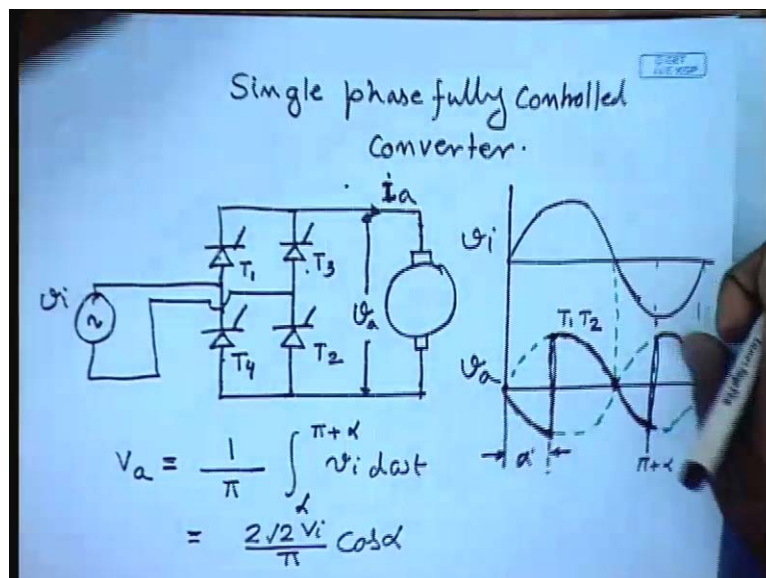 Single phase fully Controlled
Converter.
ia
vi
T1
T3
va
T4
T2
vi
T1 T2
va
α
π+α
Va = 1/π ∫ α π+α vi dωt
= 2√2 Vi/π Cosα